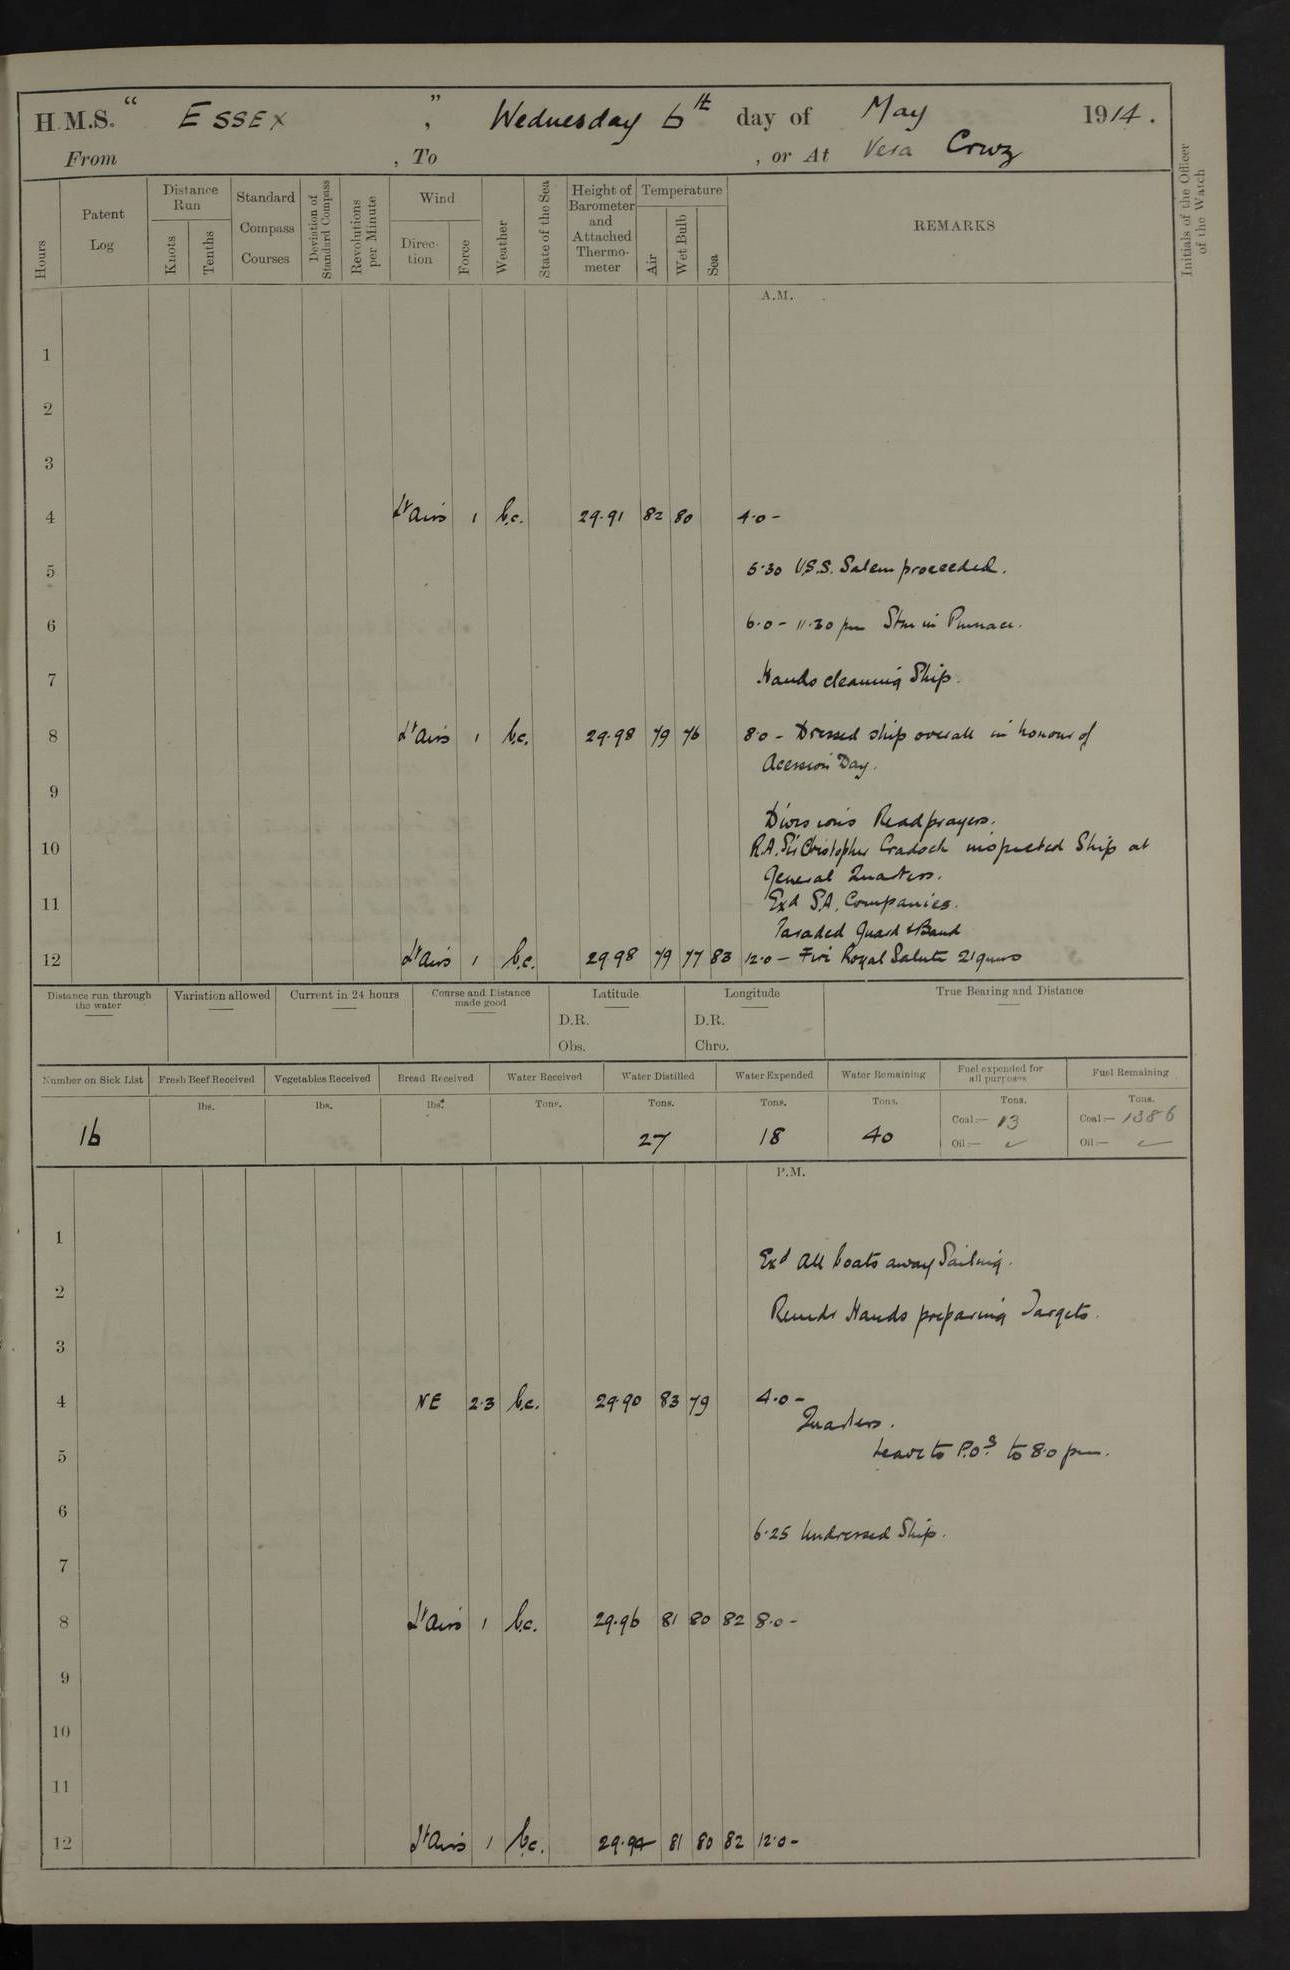 H.M.S. " ESSEX ", Wednesday 6th day of May 1914.
From , To , or At Vera Cruz
Hours
Patent Log
Distance Run
Knots
Tenths
Standard Compass Courses
Deviation of Standard Compass
Revolutions per Minute
Wind
Direction
Force
Weather
State of the Sea
Height of Barometer and Attached Thermometer
Temperature
Air
Wet Bulb
Sea
REMARKS
Initials of the Officer of the Watch
A.M.
1
2
3
4 Lt airs 1 b.c. 29.91 82 80 4.0 -
5 5.30 U.S.S. Salem proceeded.
6 6.0 - 11.30 pm Stm in Pinnace.
7 Hands cleaning Ship.
8 Lt airs 1 b.c. 29.98 79 76 8.0 - Dressed ship overall in honour of
Acession Day.
9
Divisions Read prayers.
10 R.A. Sir Christopher Cradock inspected Ship at
General Quarters.
11 Exd S.A. Companies.
Paraded Guard & Band
12 Lt airs 1 b.c. 29.98 79 77 83 12.0 - Fire Royal Salute 21 guns
Distance run through the water
Variation allowed
Current in 24 hours
Course and Distance made good
Latitude
D.R.
Obs.
Longitude
D.R.
Chro.
True Bearing and Distance
Number on Sick List
Fresh Beef Received
Vegetables Received
Bread Received
Water Received
Water Distilled
Water Expended
Water Remaining
Fuel expended for all purposes
Fuel Remaining
lbs. lbs. lbs. Tons. Tons. Tons. Tons. Tons. Tons.
16 27 18 40
Coal:— 13
Oil:— ✓
Coal:— 1386
Oil:— ✓
P.M.
1
Exd all boats away Sailing.
2
Remdr Hands preparing Targets.
3
4 NE 2.3 b.c. 29.90 83 79 4.0 -
Quarters.
5 Leave to P.Os. to 8.0 pm.
6
6.25 Undressed Ship.
7
8 Lt airs 1 b.c. 29.96 81 80 82 8.0 -
9
10
11
12 Lt airs 1 b.c. 29.94 81 80 82 12.0 -